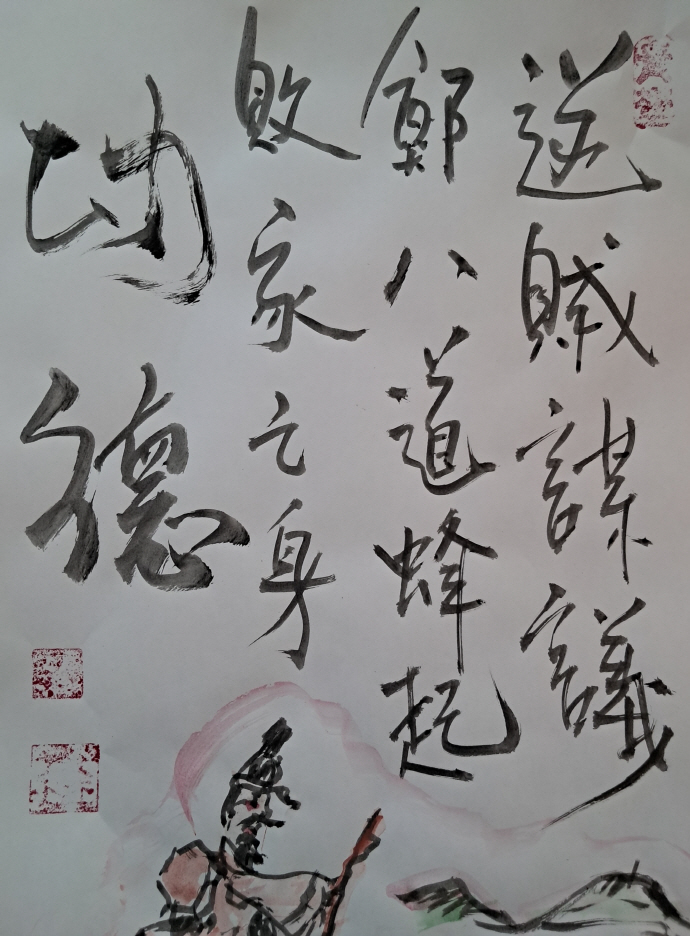 逆賊謀議
鄭八道蜂起
敗家之身
功德